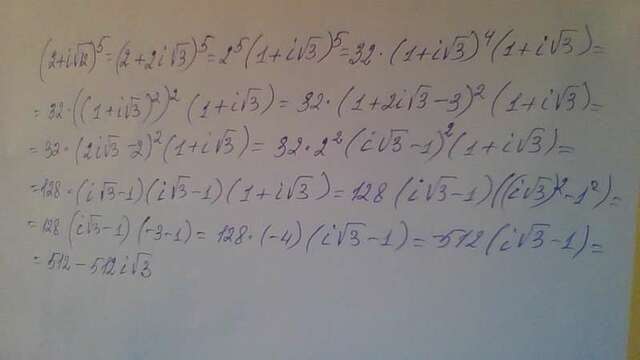 (2+i√12)^5=(2+2i√3)^5=2^5(1+i√3)^5=32·(1+i√3)^4(1+i√3)=
=32·((1+i√3)^2)^2(1+i√3)=32·(1+2i√3-3)^2(1+i√3)=
=32·(2i√3-2)^2(1+i√3)=32·2^2(i√3-1)^2(1+i√3)=
=128·(i√3-1)(i√3-1)(1+i√3)=128(i√3-1)((i√3)^2-1^2)=
=128(i√3-1)(-3-1)=128·(-4)(i√3-1)=-512(i√3-1)=
=512-512i√3